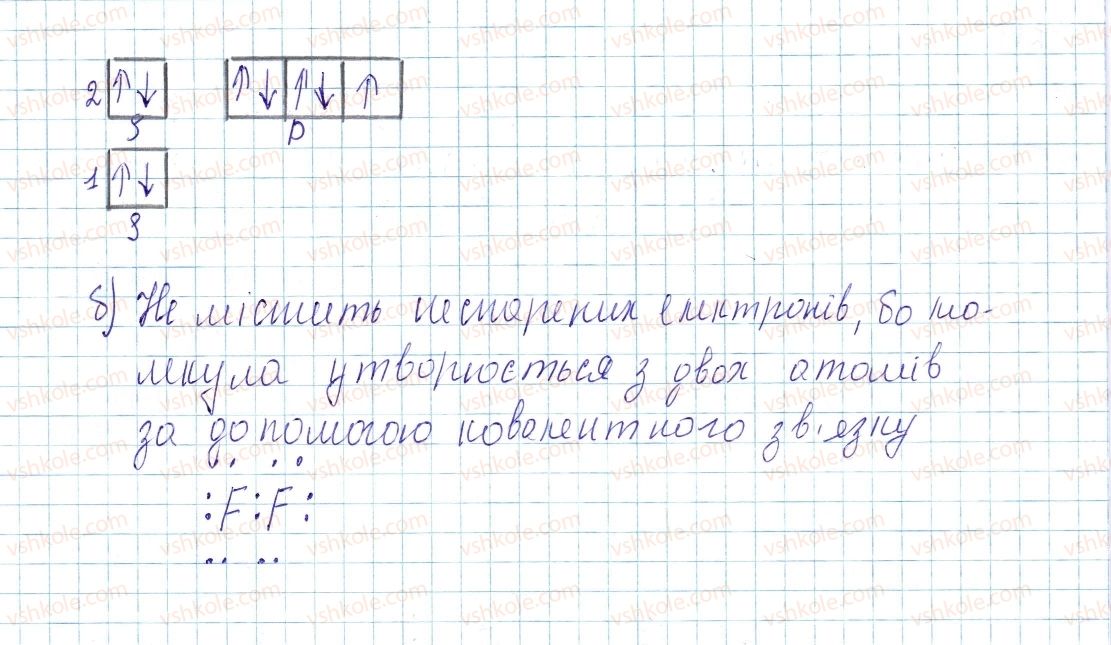 2 ↑↓ ↑↓ ↑↓ ↑
s p
1 ↑↓
s
б) Не містить неспарених електронів, бо мо-
лекула утворюється з двох атомів
за допомогою ковалентного зв'язку
:F:F:
vshkole.com